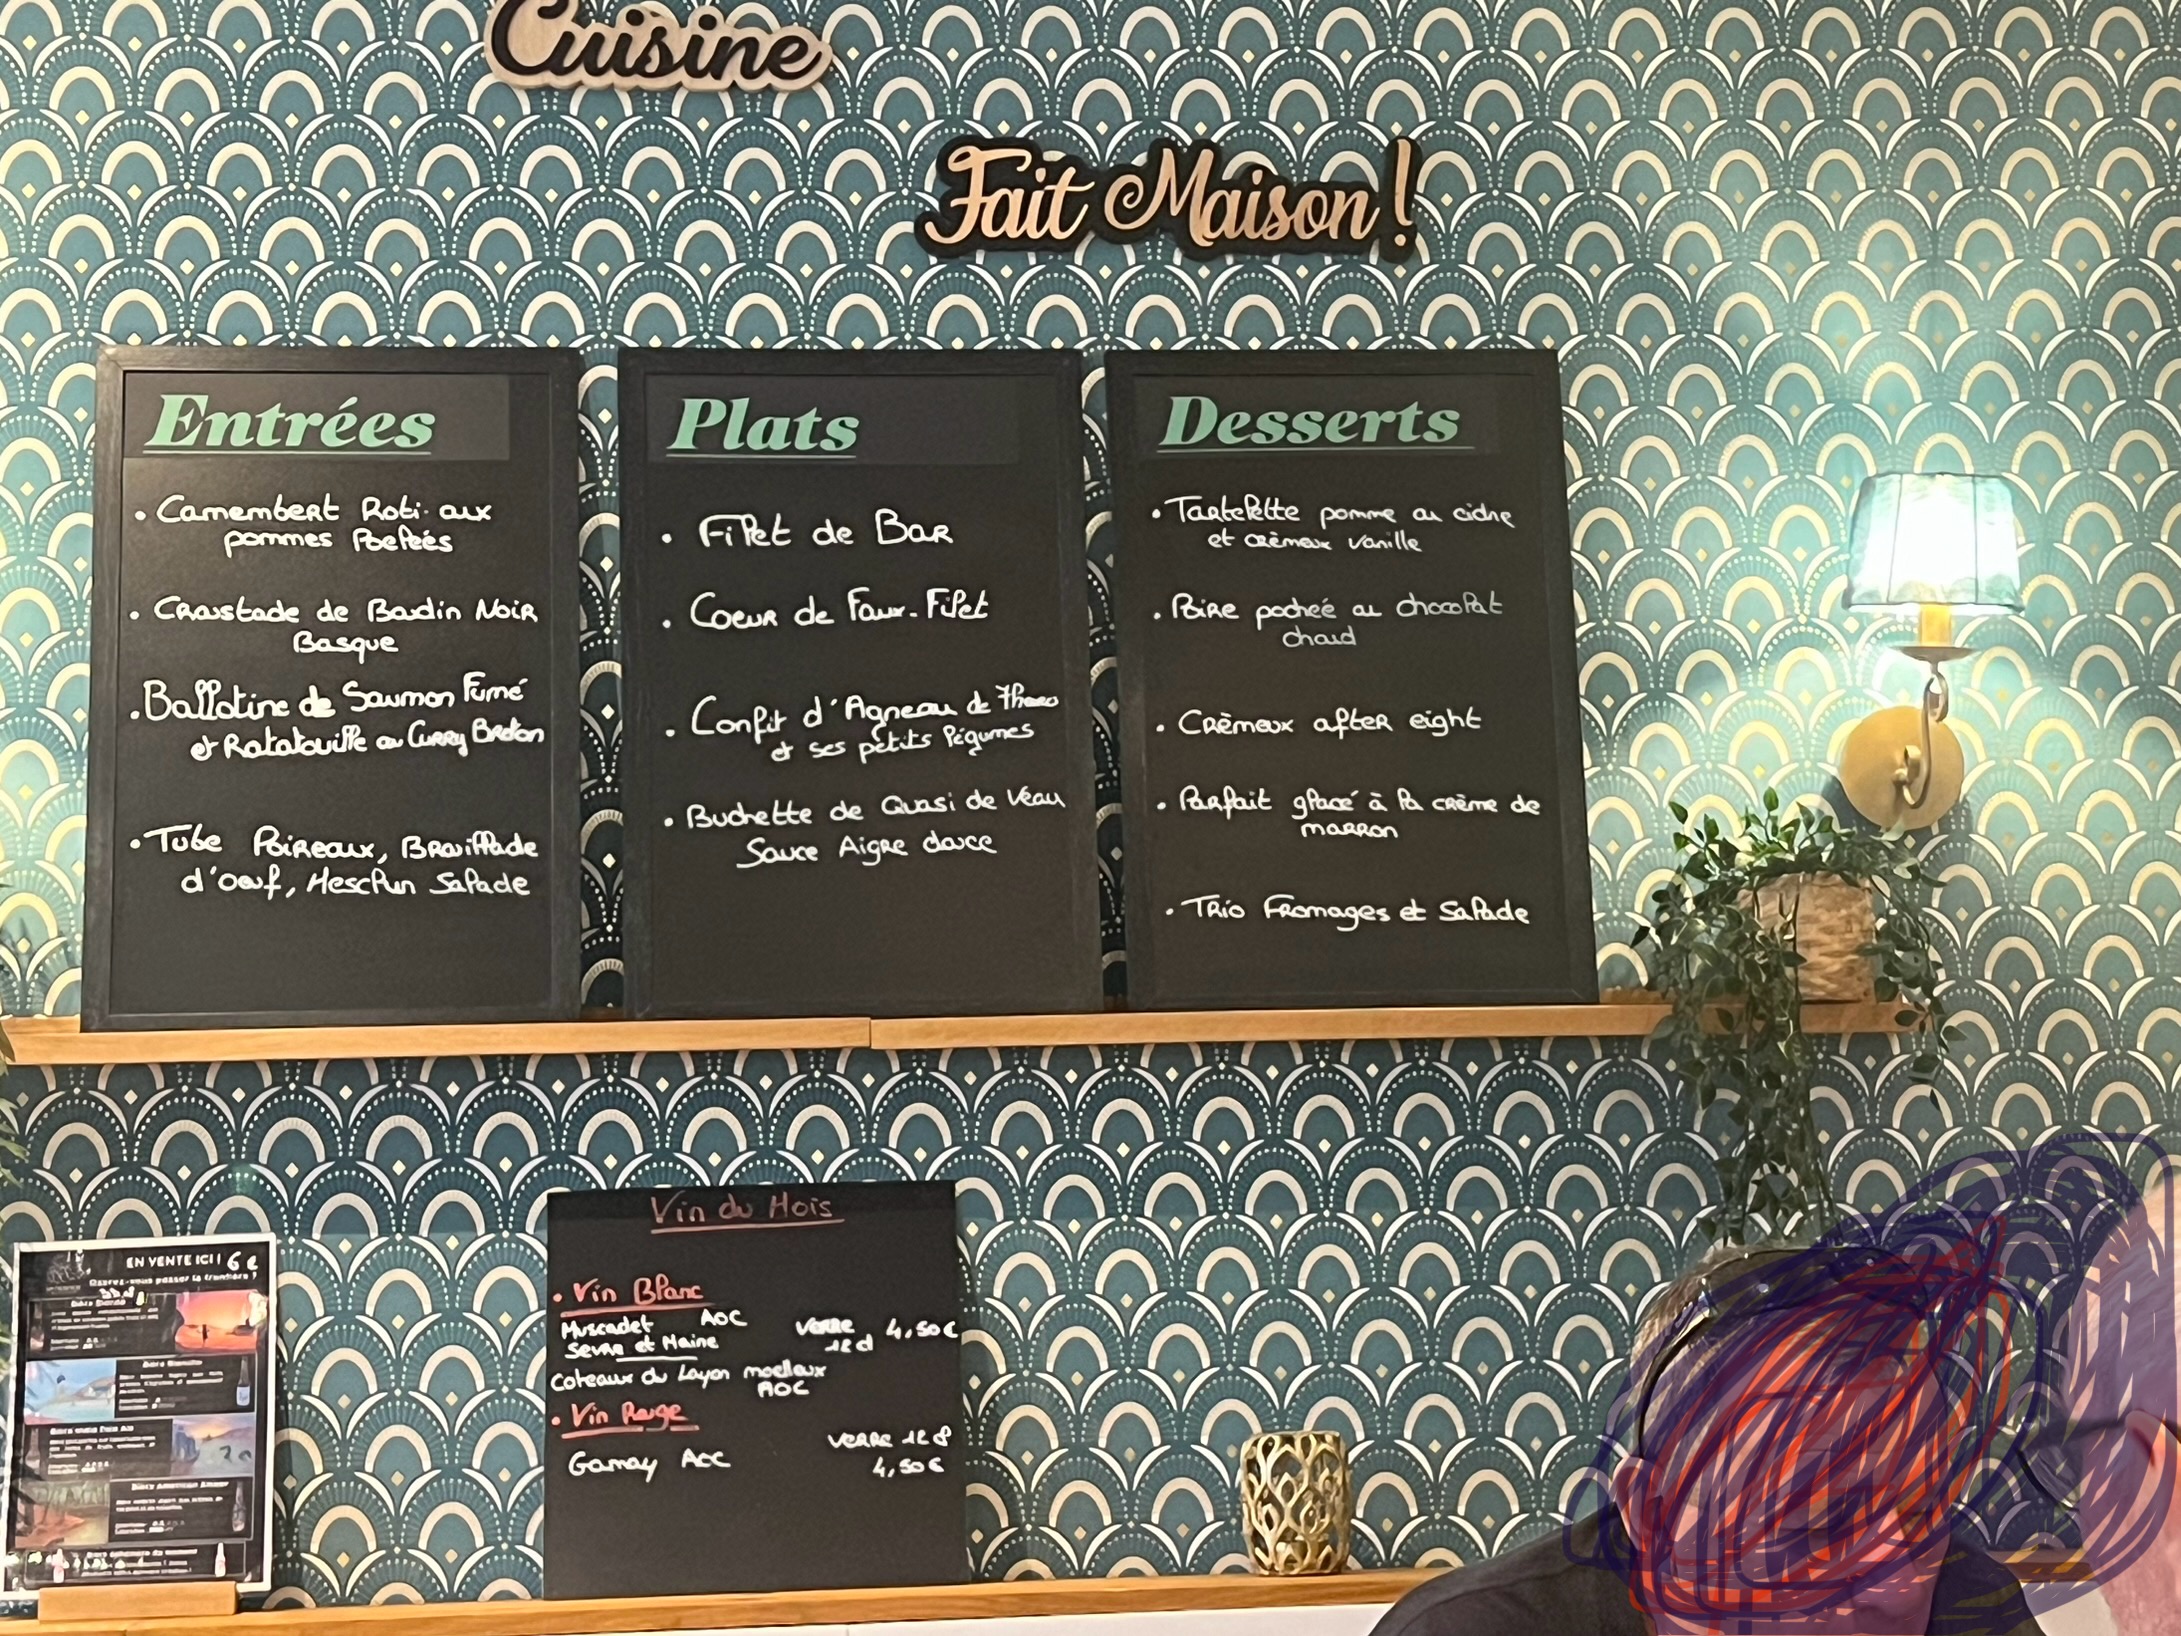 Cuisine
Fait Maison !
Entrées
• Camembert Roti aux
pommes Poeleés
• Croustade de Boudin Noir
Basque
• Ballotine de Saumon Fumé
et Ratatouille au Curry Breton
• Tube Poireaux, Brouillade
d'oeuf, Mesclun Salade
Plats
• Filet de Bar
• Coeur de Faux-Filet
• Confit d'Agneau de 7h
et ses petits légumes
• Buchette de Quasi de Veau
Sauce Aigre douce
Desserts
• Tartelette pomme au cidre
et crèmeux vanille
• Poire pocheé au chocolat
chaud
• Crèmeux after eight
• Parfait glacé à la crème de
marron
• Trio Fromages et Salade
EN VENTE ICI ! 6 €
Oserez-vous passer la frontière ?
Vin du Mois
• Vin Blanc
Muscadet AOC verre 4,50€
Sevre et Maine 12cl
Coteaux du Layon moelleux
AOC
• Vin Rouge
Gamay AOC verre 12cl
4,50€